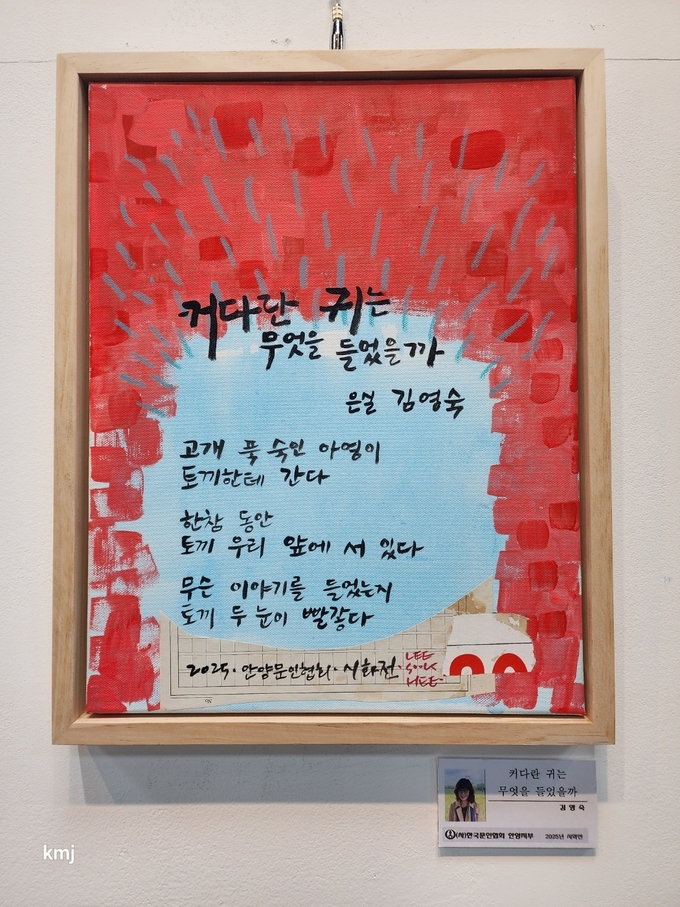 커다란 귀는
무엇을 들었을까
은실 김영숙
고개 푹 숙인 아영이
토끼한테 간다
한참 동안
토끼 우리 앞에 서 있다
무슨 이야기를 들었는지
토끼 두 눈이 빨갛다
2025·안양문인협회·시화전·
LEE
SOOK
HEE
커다란 귀는
무엇을 들었을까
김영숙
(사)한국문인협회 안양지부 2025년 시화전
kmj